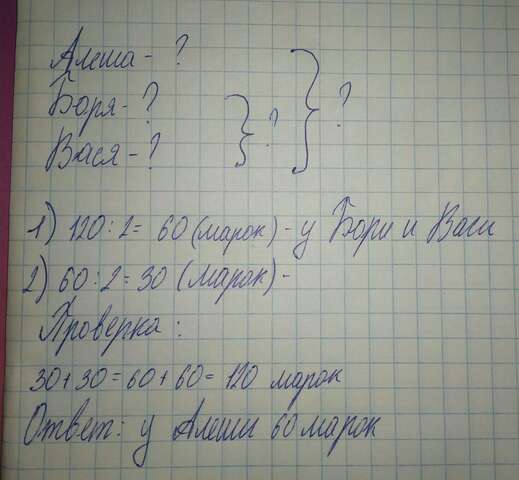 Алеша - ?
Боря - ?
Вася - ?
? ?
1) 120 : 2 = 60 (марок) - у Бори и Васи
2) 60 : 2 = 30 (марок) -
Проверка :
30 + 30 = 60 + 60 = 120 марок
Ответ: у Алеши 60 марок